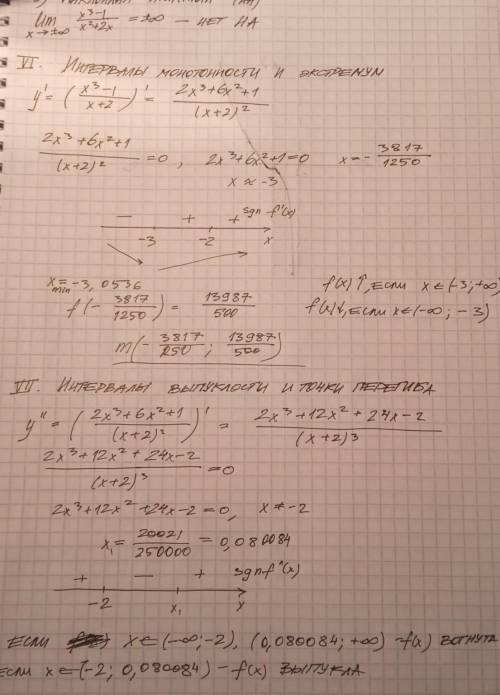 lim x→±∞ (x³-1)/(x²+2x) = ±∞ — НЕТ НА
VI. ИНТЕРВАЛЫ МОНОТОННОСТИ И ЭКСТРЕМУМ
y' = ((x³-1)/(x+2))' = (2x³+6x²+1)/(x+2)²
(2x³+6x²+1)/(x+2)² = 0, 2x³+6x²+1=0 x=-3817/1250
x≈-3
— + + sgn f'(x)
-3 -2 x
x min = -3,0536
f(-3817/1250) = 13987/500
f(x)↑, если x∈(-3;+∞)
f(x)↓, если x∈(-∞;-3)
m(-3817/1250; 13987/500)
VII. ИНТЕРВАЛЫ ВЫПУКЛОСТИ И ТОЧКИ ПЕРЕГИБА
y'' = ((2x³+6x²+1)/(x+2)²)' = (2x³+12x²+24x-2)/(x+2)³
(2x³+12x²+24x-2)/(x+2)³ = 0
2x³+12x²+24x-2=0, x≠-2
x₁ = 20021/250000 = 0,080084
+ — + sgn f''(x)
-2 x₁ x
ЕСЛИ x∈(-∞;-2), (0,080084;+∞) -f(x) ВОГНУТА
ЕСЛИ x∈(-2; 0,080084) - f(x) ВЫПУКЛА